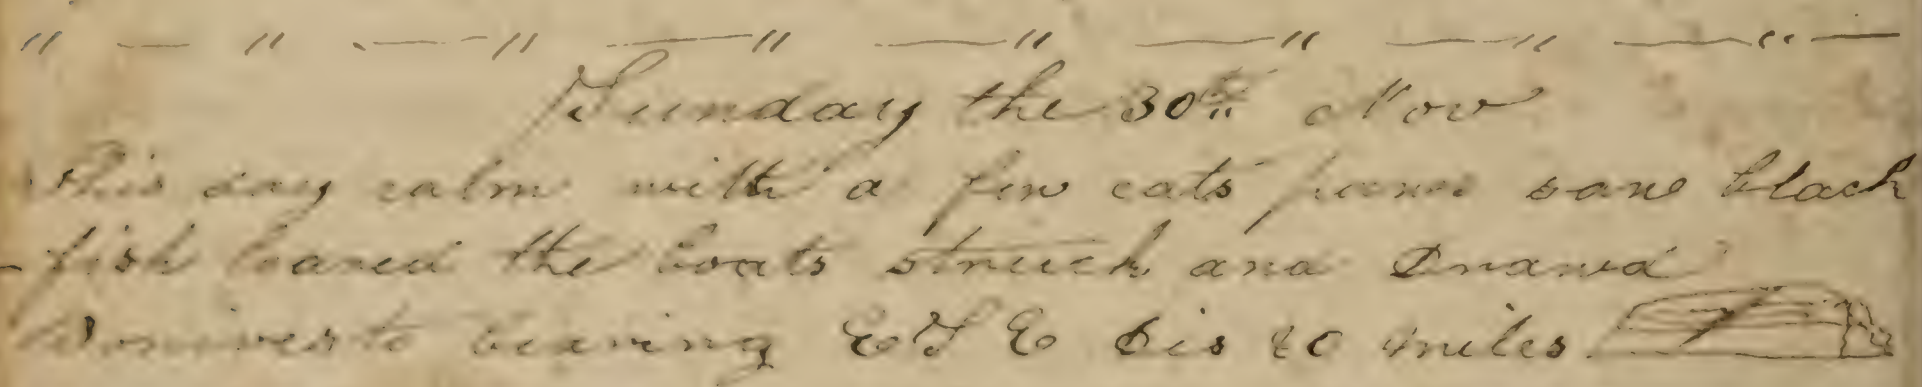 " — " — " — " — " — " — " — " —
Sunday the 30th Nov
This day calm with a few cats paws saw black
fish loared the boats struck and Drawd
Bonivesto bearing E S E Dis 20 miles